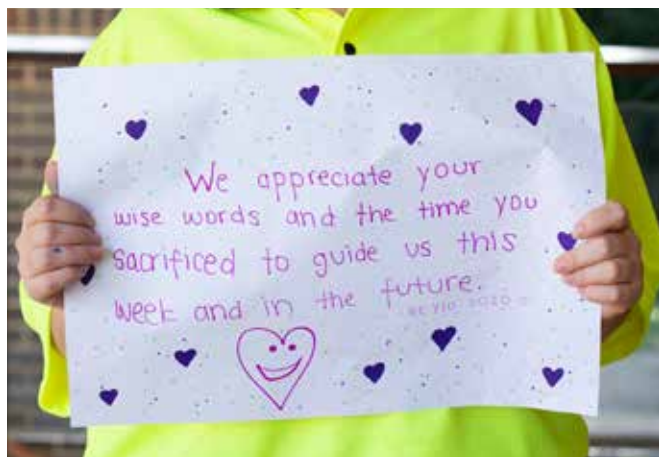 We appreciate your
wise words and the time you
sacrificed to guide us this
week and in the future.